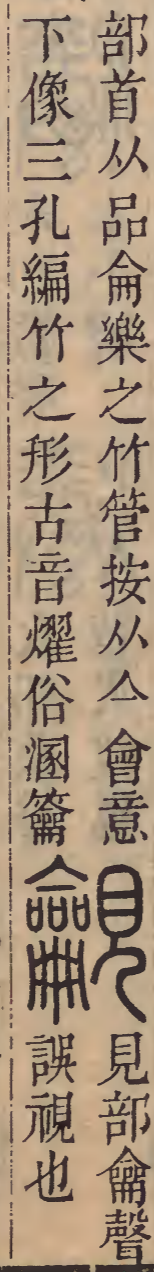 部首从品侖樂之竹管按从亼會意
下像三孔編竹之形古音燿俗溷籥
見部龠聲
誤視也